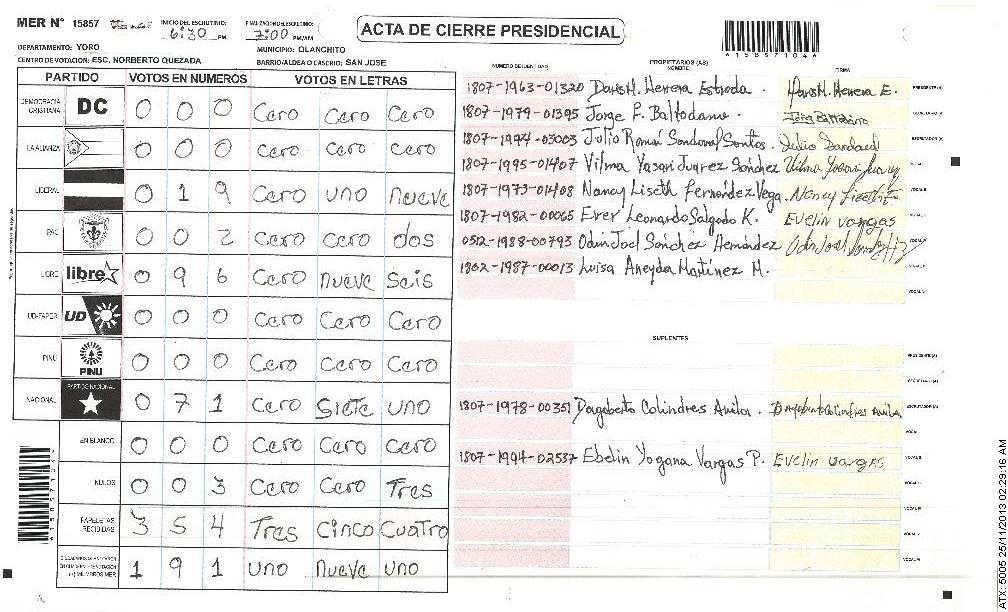 MER N° 15857
INICIO DEL ESCRUTINIO: 6:30 PM
FINALIZACION DEL ESCRUTINIO: 7:00 PM/AM
ACTA DE CIERRE PRESIDENCIAL
6158571046
DEPARTAMENTO: YORO
MUNICIPIO: OLANCHITO
CENTRO DE VOTACION: ESC. NORBERTO QUEZADA
BARRIO/ALDEA O CASERIO: SAN JOSE
PARTIDO VOTOS EN NUMEROS VOTOS EN LETRAS
DEMOCRACIA CRISTIANA DC 0 0 0 Cero Cero Cero
LA ALIANZA 0 0 0 Cero Cero Cero
LIBERAL 0 1 9 Cero uno nueve
PAC 0 0 2 Cero Cero dos
LIBRE libre 0 9 6 Cero nueve Seis
UD-FAPER UD 0 0 0 Cero Cero Cero
PINU PINU 0 0 0 Cero Cero Cero
NACIONAL PARTIDO NACIONAL 0 7 1 Cero Siete uno
EN BLANCO 0 0 0 Cero Cero Cero
NULOS 0 0 3 Cero Cero Tres
PAPELETAS RECIBIDAS 3 5 4 Tres Cinco Cuatro
MIEMBROS MER 1 9 1 uno nueve uno
NUMERO DE IDENTIDAD PROPIETARIOS (AS) NOMBRE FIRMA
1807-1963-01320 Daris H. Herrera Estrada. Daris H. Herrera E. PRESIDENTE (A)
1807-1979-01395 Jorge F. Baltodano. Jorge Baltodano SECRETARIO (A)
1807-1994-03003 Julio Roman Sandoval Santos. Julio Sandoval ESCRUTADOR (A)
1807-1995-01407 Vilma Yasari Juarez Sánchez Vilma Yasari Juarez
1807-1973-01408 Nancy Liseth Fernández Vega. Nancy Lizeth VOCAL II
1807-1982-00065 Ever Leonardo Salgado K. Evelin vargas
0512-1988-00793 Odin Joel Sánchez Hernández
1802-1987-00013 Luisa Aneyda Martinez M.
SUPLENTES
PRESIDENTE (A)
SECRETARIO (A)
1807-1978-00351 Dagoberto Colindres Avila. Dagoberto Colindres Avila ESCRUTADOR (A)
VOCAL I
1807-1994-02537 Ebelin Yogana Vargas P. Evelin vargas VOCAL II
ATX: 5005 25/11/2013 02:29:16 AM